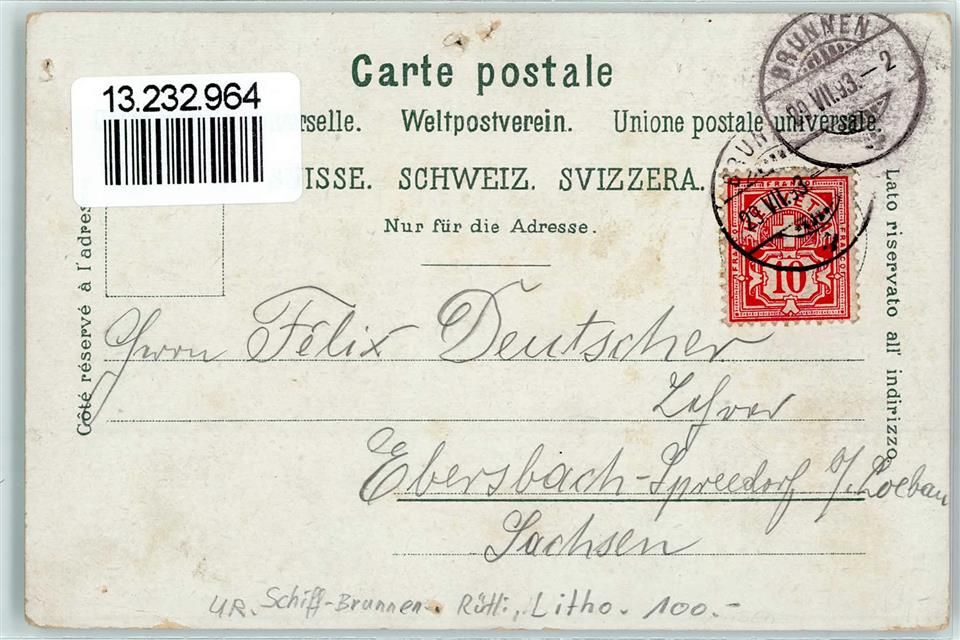 Carte postale
13.232.964
rselle. Weltpostverein. Unione postale universale.
ISSE. SCHWEIZ. SVIZZERA.
Nur für die Adresse.
Côté réservé à l'adres
Lato riservato all' indirizzo
BRUNNEN
29 VII.93.-2
BRUN
29 VII.93
FRANCO
HELVETIA
10
Herrn Félix Deutscher
Lehrer
Ebersbach-Spreedorf i/. Loebau
Sachsen
UR. Schiff-Brunnen. Rütli, Litho. 100.-